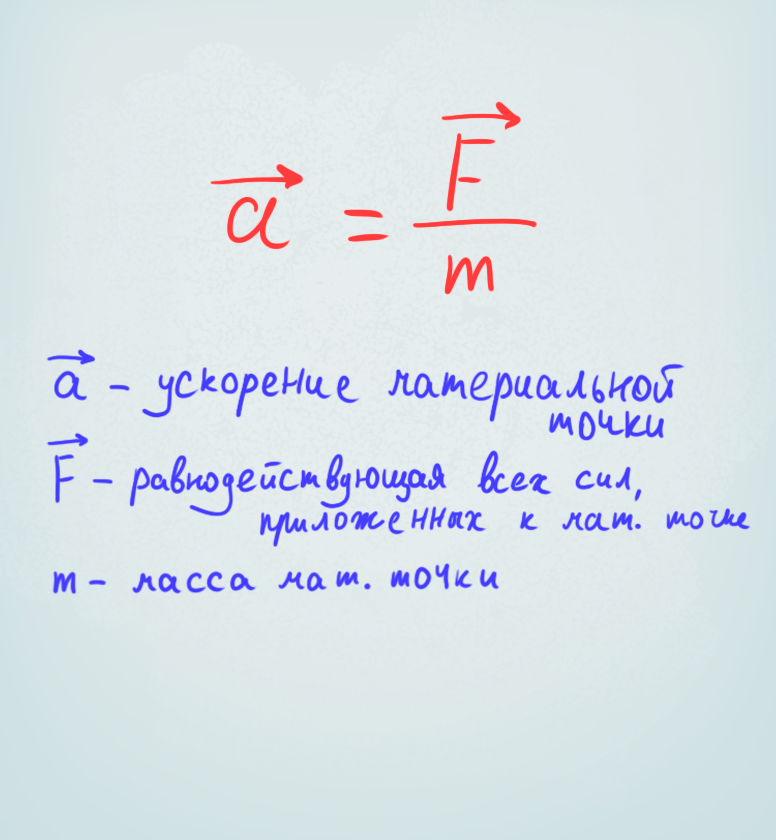 a⃗ = F⃗ / m
a⃗ – ускорение материальной
точки
F⃗ – равнодействующая всех сил,
приложенных к мат. точке
m – масса мат. точки